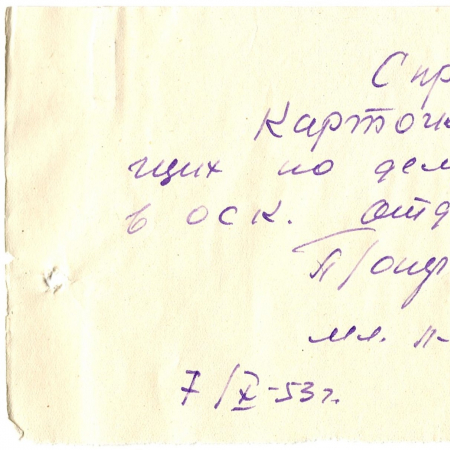 Спр
Карточк
щих по дел
в оск. отд
П/опф
мл. л-
7/X-53г.